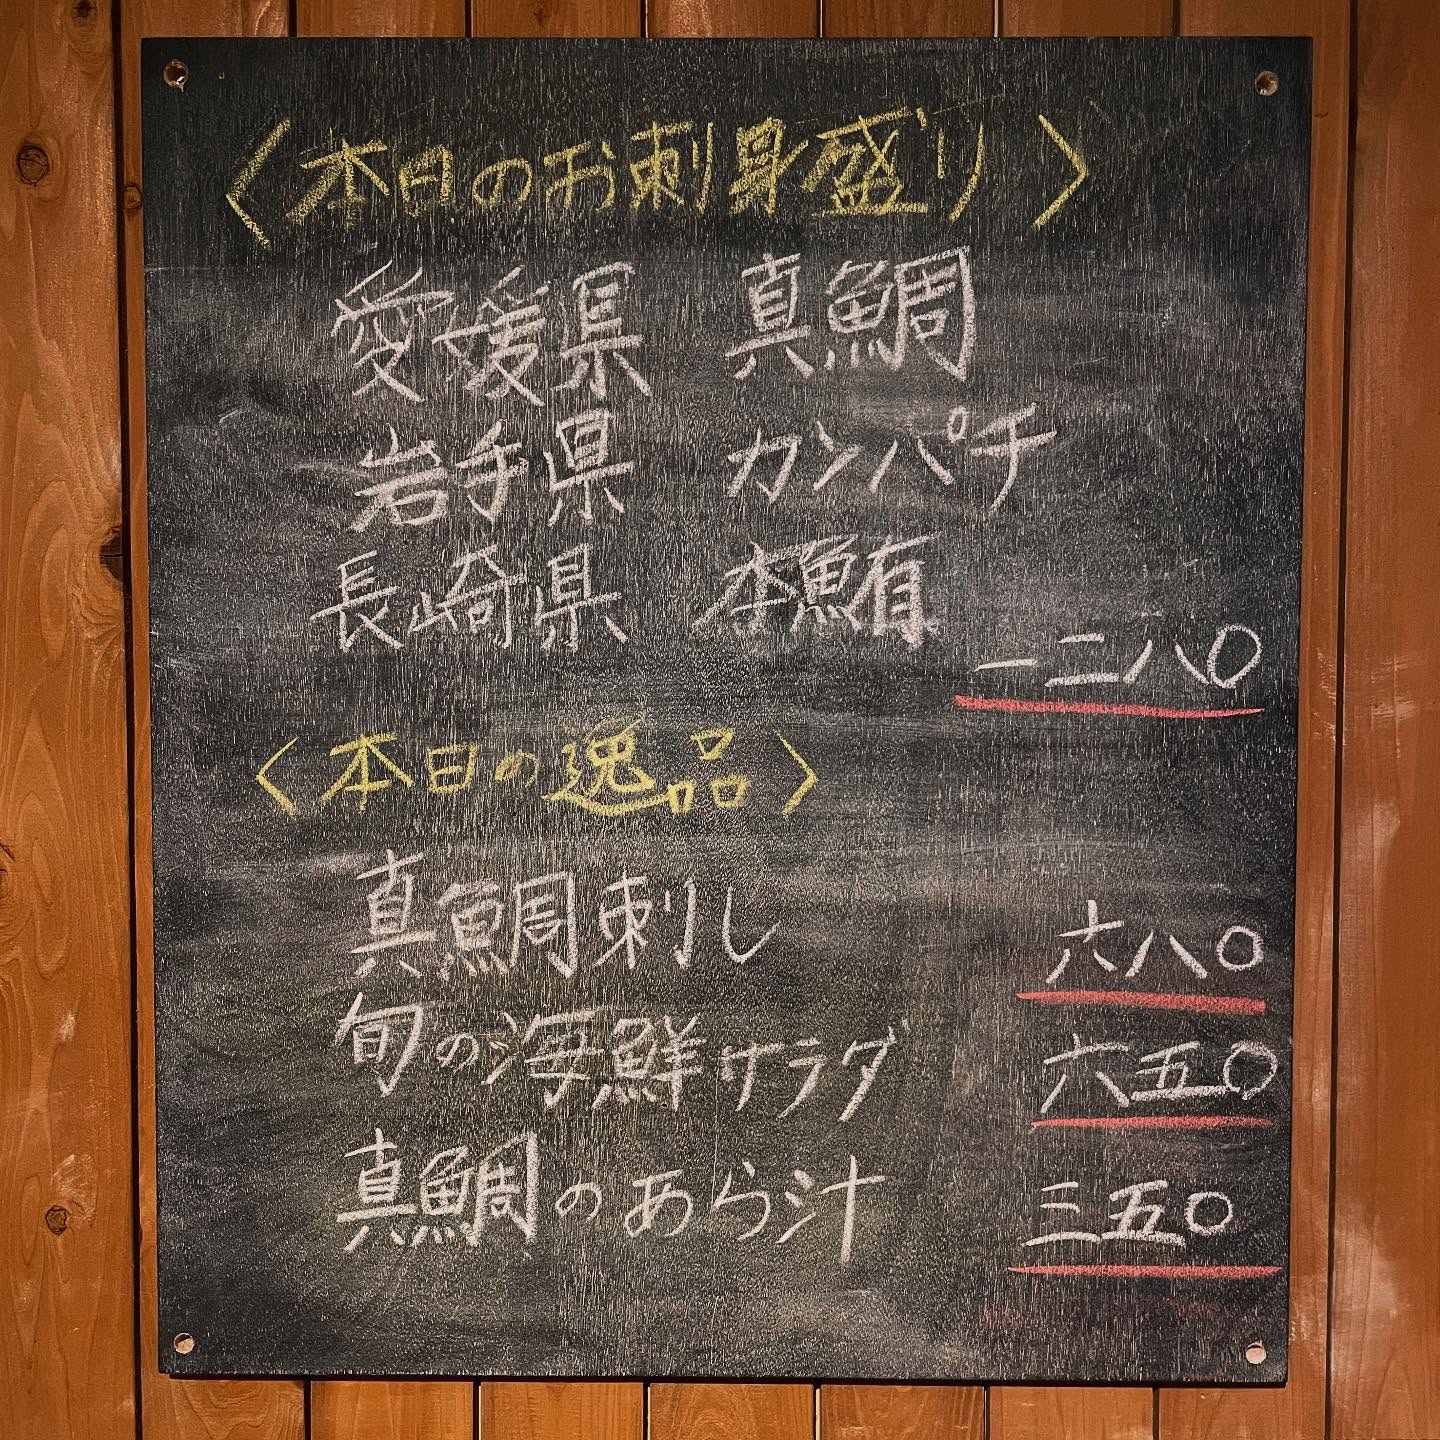 〈本日のお刺身盛り〉
愛媛県 真鯛
岩手県 カンパチ
長崎県 本鮪
一二八〇
〈本日の逸品〉
真鯛刺し 六八〇
旬の海鮮サラダ 六五〇
真鯛のあら汁 三五〇